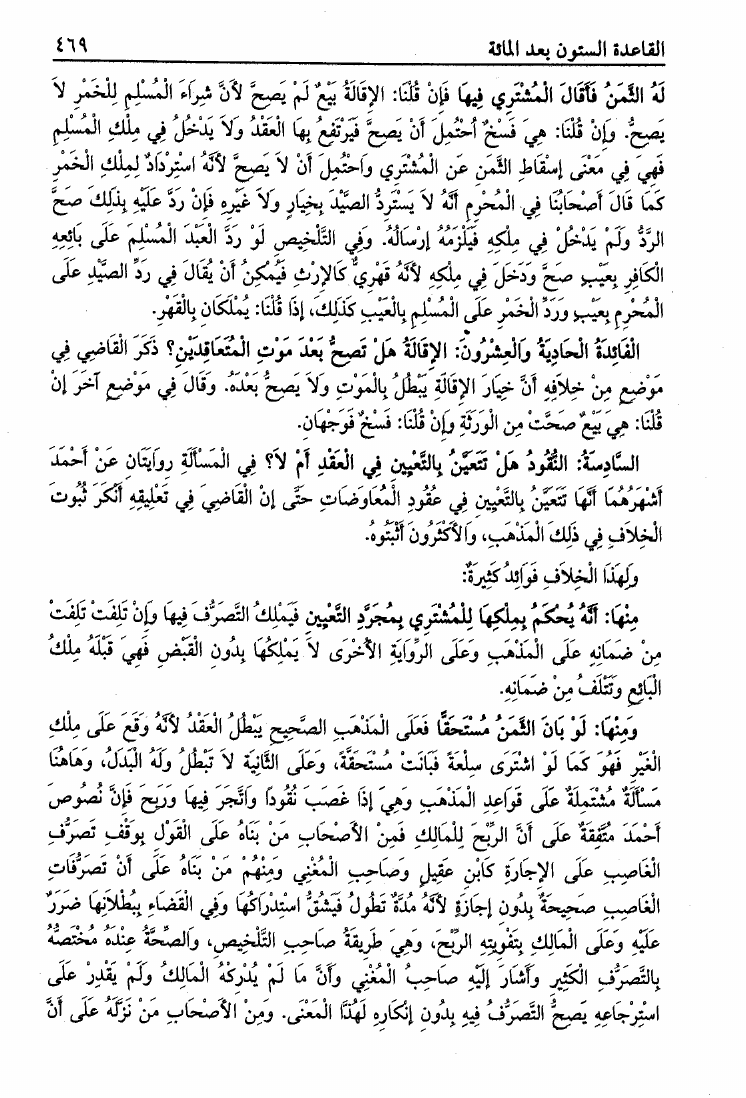 القاعدة الستون بعد المائة ٤٦٩
لَهُ الثَّمَنُ فَأَقَالَ الْمُشْتَرِي فِيهَا فَإِنْ قُلْنَا: الإِقَالَةُ بَيْعٌ لَمْ يَصِحَّ لأَنَّ شِرَاءَ الْمُسْلِمِ لِلْخَمْرِ لاَ
يَصِحُّ. وَإِنْ قُلْنَا: هِيَ فَسْخٌ احْتُمِلَ أَنْ يَصِحَّ فَيَرْتَفِعُ بِهَا الْعَقْدُ وَلاَ يَدْخُلُ فِي مِلْكِ الْمُسْلِمِ
فَهِيَ فِي مَعْنَى إسْقَاطِ الثَّمَنِ عَنِ الْمُشْتَرِي وَاحْتُمِلَ أَنْ لاَ يَصِحَّ لأَنَّهُ اسْتِرْدَادٌ لِمِلْكِ الْخَمْرِ
كَمَا قَالَ أَصْحَابُنَا فِي الْمُحْرِمِ أَنَّهُ لاَ يَسْتَرِدُّ الصَّيْدَ بِخِيَارٍ وَلاَ غَيْرِهِ فَإِنْ رَدَّ عَلَيْهِ بِذٰلِكَ صَحَّ
الرَّدُّ وَلَمْ يَدْخُلْ فِي مِلْكِهِ فَيَلْزَمُهُ إرْسَالُهُ. وَفِي التَّلْخِيصِ لَوْ رَدَّ الْعَبْدَ الْمُسْلِمَ عَلَى بَائِعِهِ
الْكَافِرِ بِعَيْبٍ صَحَّ وَدَخَلَ فِي مِلْكِهِ لأَنَّهُ قَهْرِيٌّ كَالإِرْثِ فَيُمْكِنُ أَنْ يُقَالَ فِي رَدِّ الصَّيْدِ عَلَى
الْمُحْرِمِ بِعَيْبٍ وَرَدِّ الْخَمْرِ عَلَى الْمُسْلِمِ بِالْعَيْبِ كَذٰلِكَ، إذَا قُلْنَا: يُمْلَكَانِ بِالْقَهْرِ.
الْفَائِدَةُ الْحَادِيَةُ وَالْعِشْرُونَ: الإِقَالَةُ هَلْ تَصِحُّ بَعْدَ مَوْتِ الْمُتَعَاقِدَيْنِ؟ ذَكَرَ الْقَاضِي فِي
مَوْضِعٍ مِنْ خِلاَفِهِ أَنَّ خِيَارَ الإِقَالَةِ يَبْطُلُ بِالْمَوْتِ وَلاَ يَصِحُّ بَعْدَهُ. وَقَالَ فِي مَوْضِعٍ آخَرَ إنْ
قُلْنَا: هِيَ بَيْعٌ صَحَّتْ مِنِ الْوَرَثَةِ وَإِنْ قُلْنَا: فَسْخٌ فَوَجْهَانِ.
السَّادِسَةُ: النُّقُودُ هَلْ تَتَعَيَّنُ بِالتَّعْيِينِ فِي الْعَقْدِ أَمْ لاَ؟ فِي الْمَسْأَلَةِ رِوَايَتَانِ عَنْ أَحْمَدَ
أَشْهَرُهُمَا أَنَّهَا تَتَعَيَّنُ بِالتَّعْيِينِ فِي عُقُودِ الْمُعَاوَضَاتِ حَتَّى إنْ الْقَاضِيَ فِي تَعْلِيقِهِ أَنْكَرَ ثُبُوتَ
الْخِلاَفِ فِي ذٰلِكَ الْمَذْهَبِ، وَالأَكْثَرُونَ أَثْبَتُوهُ.
وَلِهٰذَا الْخِلاَفِ فَوَائِدُ كَثِيرَةٌ:
مِنْهَا: أَنَّهُ يُحْكَمُ بِمِلْكِهَا لِلْمُشْتَرِي بِمُجَرَّدِ التَّعْيِينِ فَيَمْلِكُ التَّصَرُّفَ فِيهَا وَإِنْ تَلِفَتْ تَلِفَتْ
مِنْ ضَمَانِهِ عَلَى الْمَذْهَبِ وَعَلَى الرِّوَايَةِ الأُخْرَى لاَ يَمْلِكُهَا بِدُونِ الْقَبْضِ فَهِيَ قَبْلَهُ مِلْكُ
الْبَائِعِ وَتَتْلَفُ مِنْ ضَمَانِهِ.
وَمِنْهَا: لَوْ بَانَ الثَّمَنُ مُسْتَحَقًّا فَعَلَى الْمَذْهَبِ الصَّحِيحِ يَبْطُلُ الْعَقْدُ لأَنَّهُ وَقَعَ عَلَى مِلْكِ
الْغَيْرِ فَهُوَ كَمَا لَوِ اشْتَرَى سِلْعَةً فَبَانَتْ مُسْتَحَقَّةً، وَعَلَى الثَّانِيَةِ لاَ تَبْطُلُ وَلَهُ الْبَدَلُ، وَهَاهُنَا
مَسْأَلَةٌ مُشْتَمِلَةٌ عَلَى قَوَاعِدِ الْمَذْهَبِ وَهِيَ إذَا غَصَبَ نُقُودًا وَاتَّجَرَ فِيهَا وَرَبِحَ فَإِنَّ نُصُوصَ
أَحْمَدَ مُتَّفِقَةٌ عَلَى أَنَّ الرِّبْحَ لِلْمَالِكِ فَمِنَ الأَصْحَابِ مَنْ بَنَاهُ عَلَى الْقَوْلِ بِوَقْفِ تَصَرُّفِ
الْغَاصِبِ عَلَى الإِجَازَةِ كَابْنِ عَقِيلٍ وَصَاحِبِ الْمُغْنِي وَمِنْهُمْ مَنْ بَنَاهُ عَلَى أَنْ تَصَرُّفَاتِ
الْغَاصِبِ صَحِيحَةٌ بِدُونِ إجَازَةٍ لأَنَّهُ مُدَّةٌ تَطُولُ فَيَشُقُّ اسْتِدْرَاكُهَا وَفِي الْقَضَاءِ بِبُطْلاَنِهَا ضَرَرٌ
عَلَيْهِ وَعَلَى الْمَالِكِ بِتَفْوِيتِهِ الرِّبْحَ، وَهِيَ طَرِيقَةُ صَاحِبِ التَّلْخِيصِ، وَالصِّحَّةُ عِنْدَهُ مُخْتَصَّةٌ
بِالتَّصَرُّفِ الْكَثِيرِ وَأَشَارَ إلَيْهِ صَاحِبُ الْمُغْنِي وَأَنَّ مَا لَمْ يُدْرِكْهُ الْمَالِكُ وَلَمْ يَقْدِرْ عَلَى
اسْتِرْجَاعِهِ يَصِحُّ التَّصَرُّفُ فِيهِ بِدُونِ إنْكَارِهِ لَهُذَا الْمَعْنَى. وَمِنَ الأَصْحَابِ مَنْ نَزَّلَهُ عَلَى أَنَّ